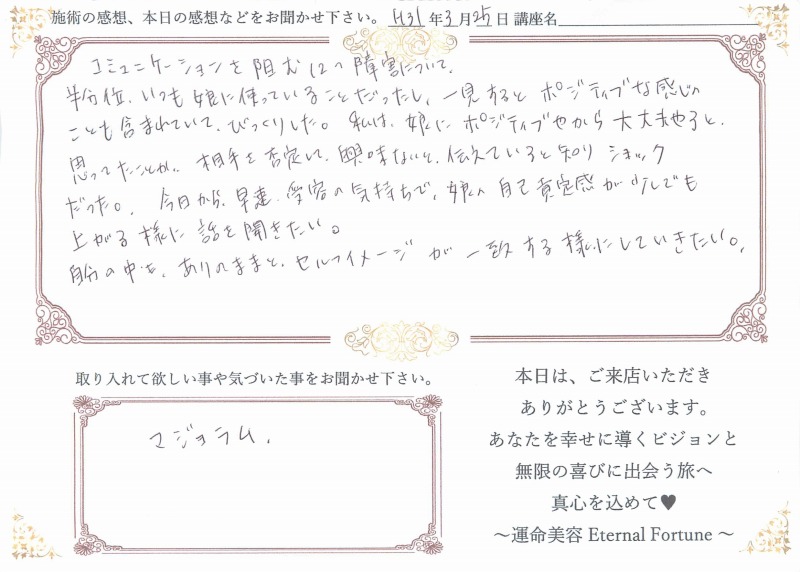 施術の感想、本日の感想などをお聞かせ下さい。 H31年3月25日 講座名
コミュニケーションを阻む12の障害について、
半分位、いつも娘に使っていることだったし、一見するとポジティブな感じの
ことも含まれていて、びっくりした。私は、娘にポジティブやから大丈夫やろと、
思ってたことが、相手を否定して、興味ないと、伝えていると知りショック
だった。今日から、早速、受容の気持ちで、娘の自己肯定感が少しでも
上がる様に話を聞きたい。
自分の中も、ありのままと、セルフイメージが一致する様にしていきたい。
取り入れて欲しい事や気づいた事をお聞かせ下さい。
マジョラム、
本日は、ご来店いただき
ありがとうございます。
あなたを幸せに導くビジョンと
無限の喜びに出会う旅へ
真心を込めて♥
～運命美容 Eternal Fortune ～